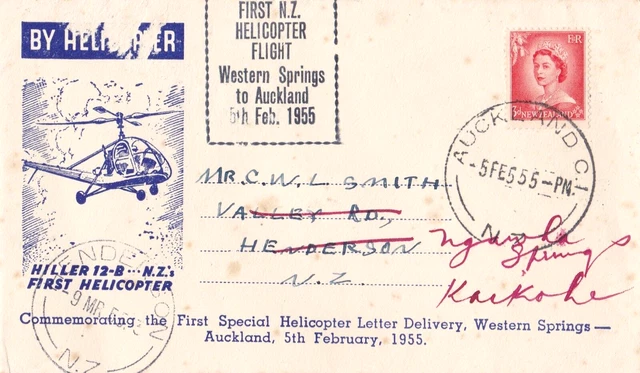 BY HELICOPTER
FIRST N.Z.
HELICOPTER
FLIGHT
Western Springs
to Auckland
5th Feb. 1955
E R
NEW ZEALAND
AUCKLAND C1
-5FE555-PM
N.Z.
MR. C. W. L. SMITH
VALLEY RD.,
HENDERSON
N.Z.
Ngawha
Springs
Kaikohe
HENDERSON
N.Z.
HILLER 12-B ... N.Z.'s
FIRST HELICOPTER
Commemorating the First Special Helicopter Letter Delivery, Western Springs—
Auckland, 5th February, 1955.